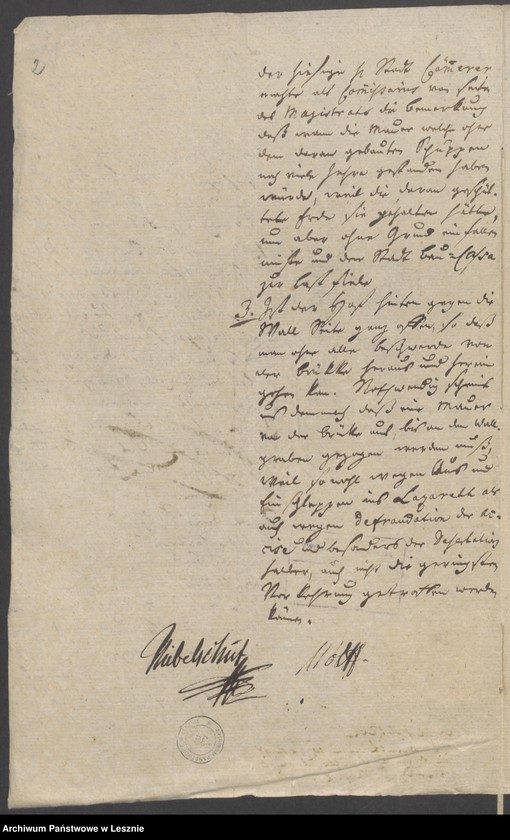 2
der hiesige H Stadt Cämerer
machte als Comissarius von seiten
des Magistrats die bemerckung
daß wann die Mauer welche ohne
dem daran gebauten Schuppen
noch viele Jahre gestanden haben
würde, weil die daran geschüt-
tete Erde sie gehalten hätte,
nun aber ohne Grund ein fallen
müste und der Stadt bau-Cassa
zur last fiele
3. Ist der Hof hinten gegen die
Wall Seite ganz offen, so daß
man ohne alle beschwerde von
der brükke heraus und herein
gehen kan. Nothwendig scheint
uns demnach daß eine Mauer
von der brüke aus, bis an den Wall
graben gezogen werden muß,
weil so wohl wegen Aus und
Ein schleppen ins Lazarett als
auch wegen Defraudation der Ac-
cise und besonders der Desertation
halber, auch nicht die geringsten
Vorkehrung getroffen werden
können.
Nübelschütz Wolff
Archiwum Państwowe w Lesznie